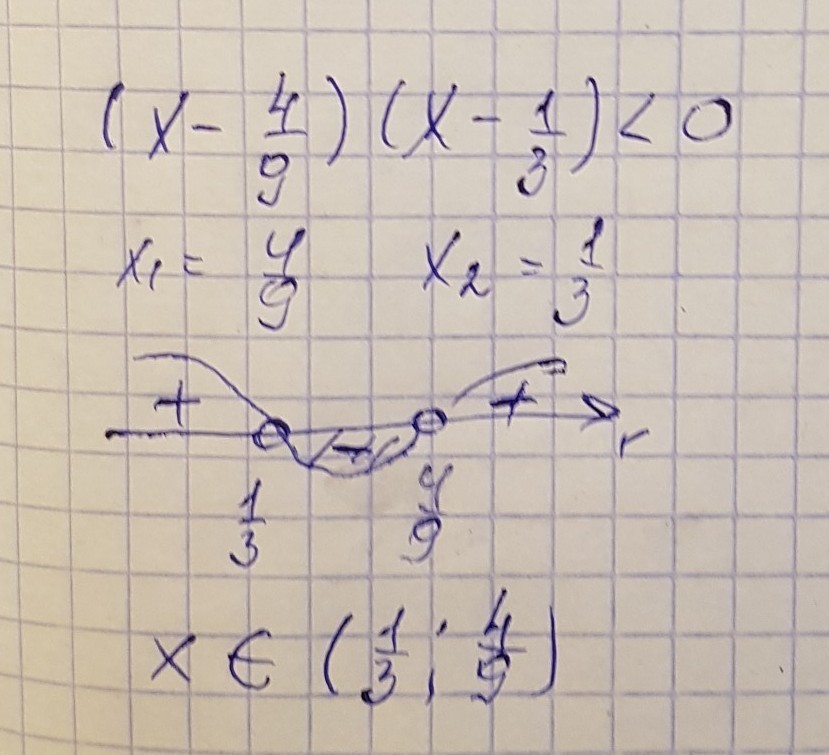 (x - 4/9)(x - 1/3) < 0
x₁ = 4/9 x₂ = 1/3
+ - +
1/3 4/9
x ∈ (1/3; 4/9)